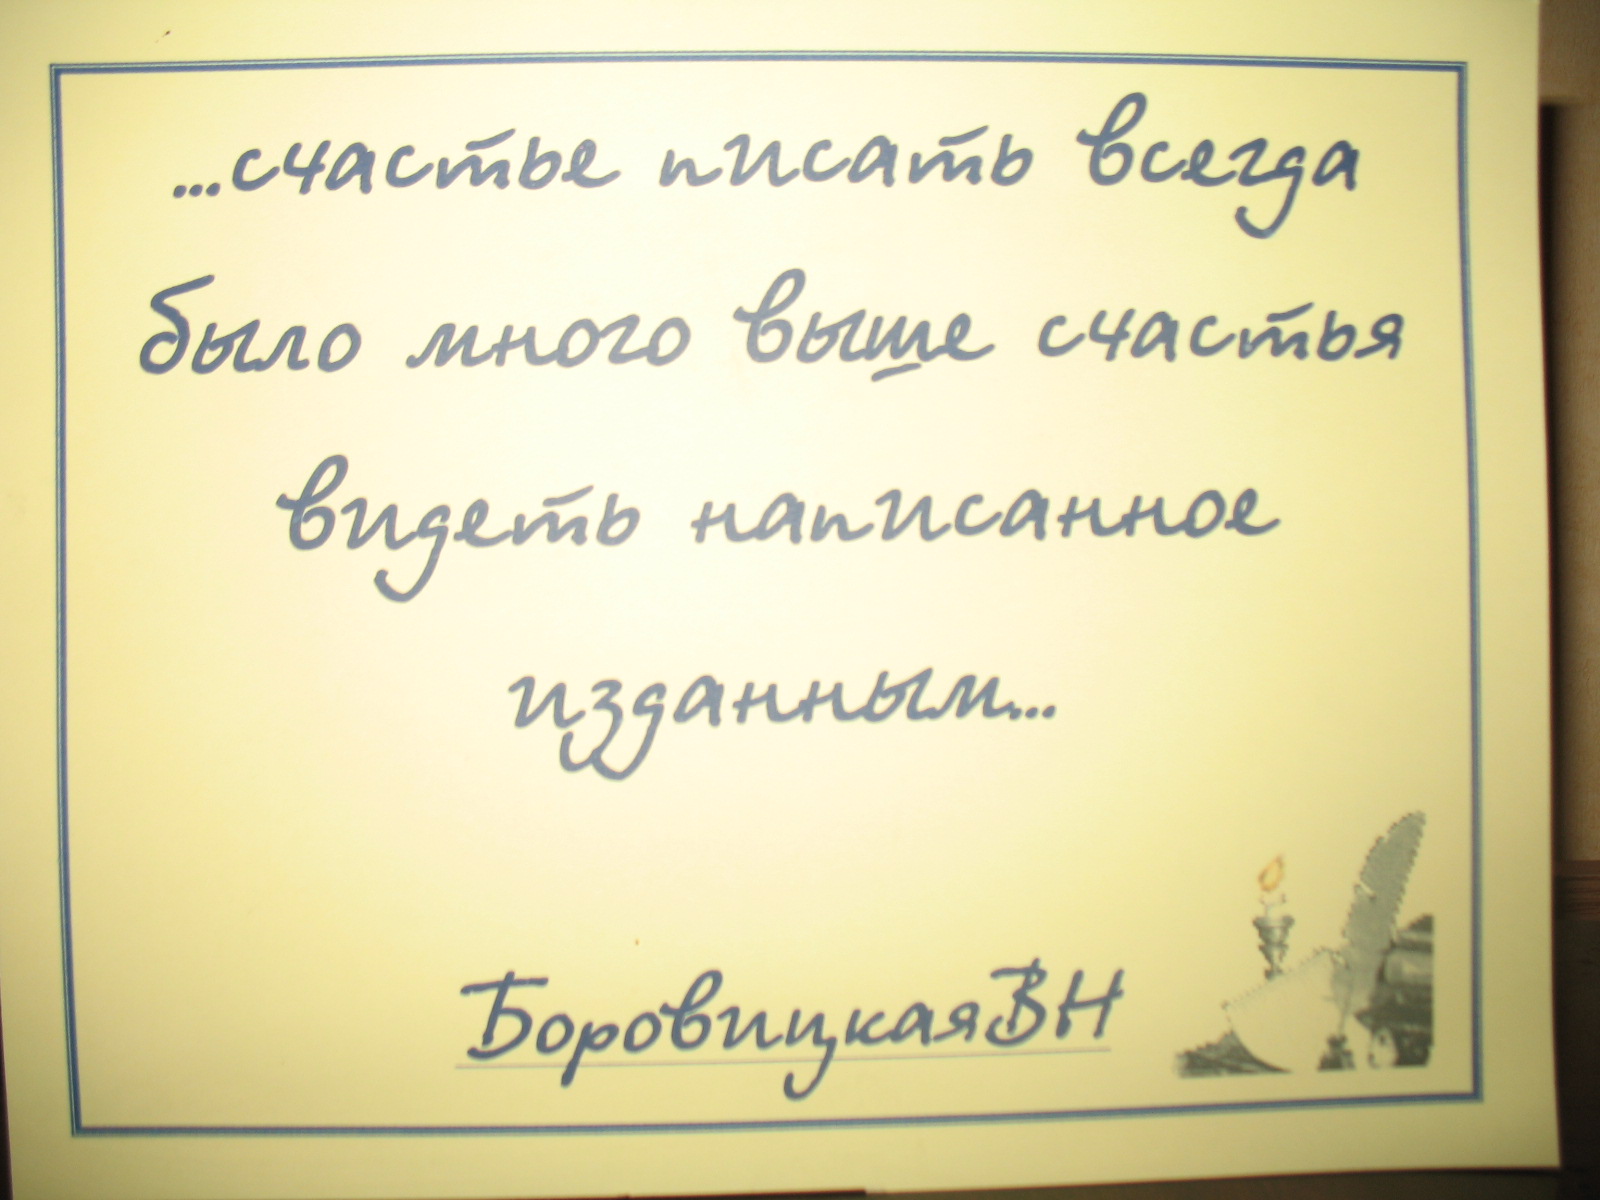 ...счастье писать всегда
было много выше счастья
видеть написанное
изданным...
БоровицкаяВН